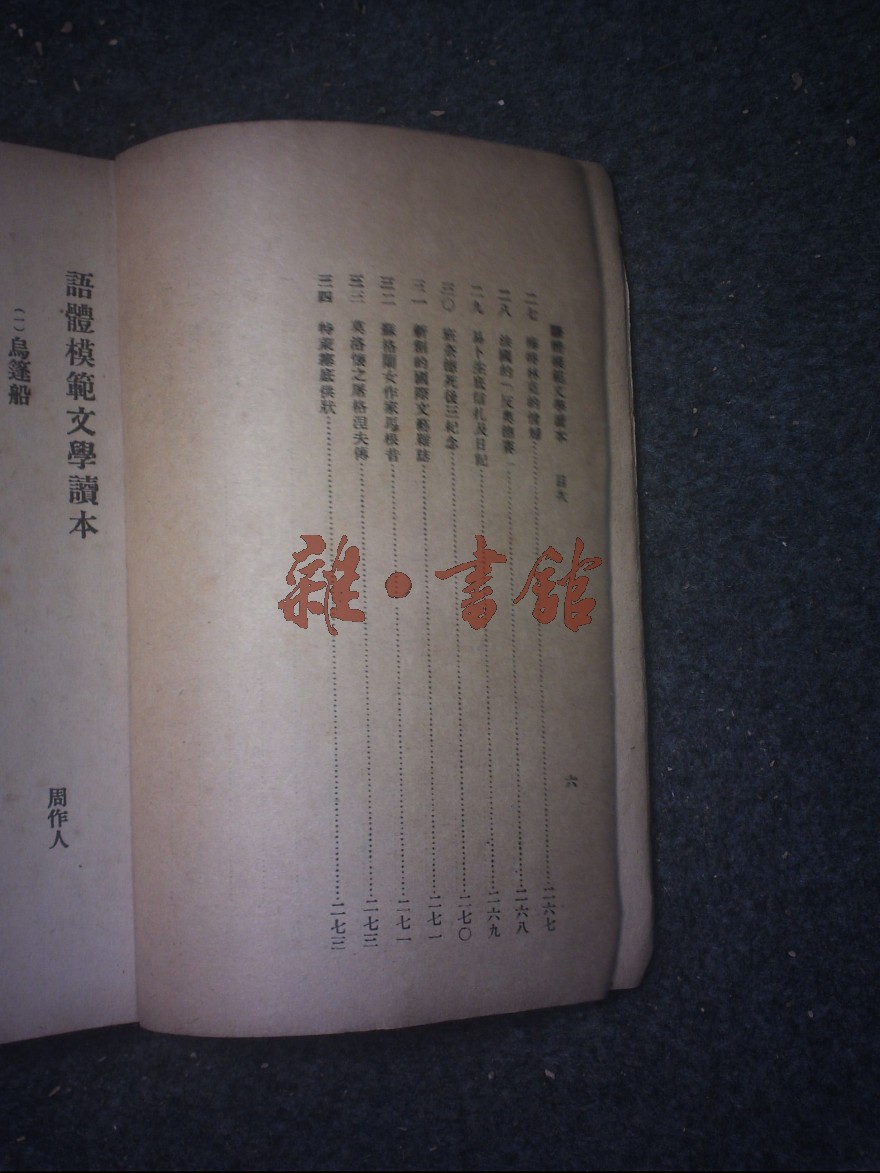 語體模範文學讀本 目次 六
二七 梅特林克的情婦 二六七
二八 法國的「反奧德賽」 二六八
二九 易卜生底信札及日記 二六九
三〇 班奈德死後三紀念 二七〇
三一 新創的國際文藝雜誌 二七一
三二 蘇格蘭女作家馬根昔 二七一
三三 莫洛懷之屠格涅夫傳 二七三
三四 特萊塞底供狀 二七三
語體模範文學讀本
(一)烏篷船
周作人
雜·書館